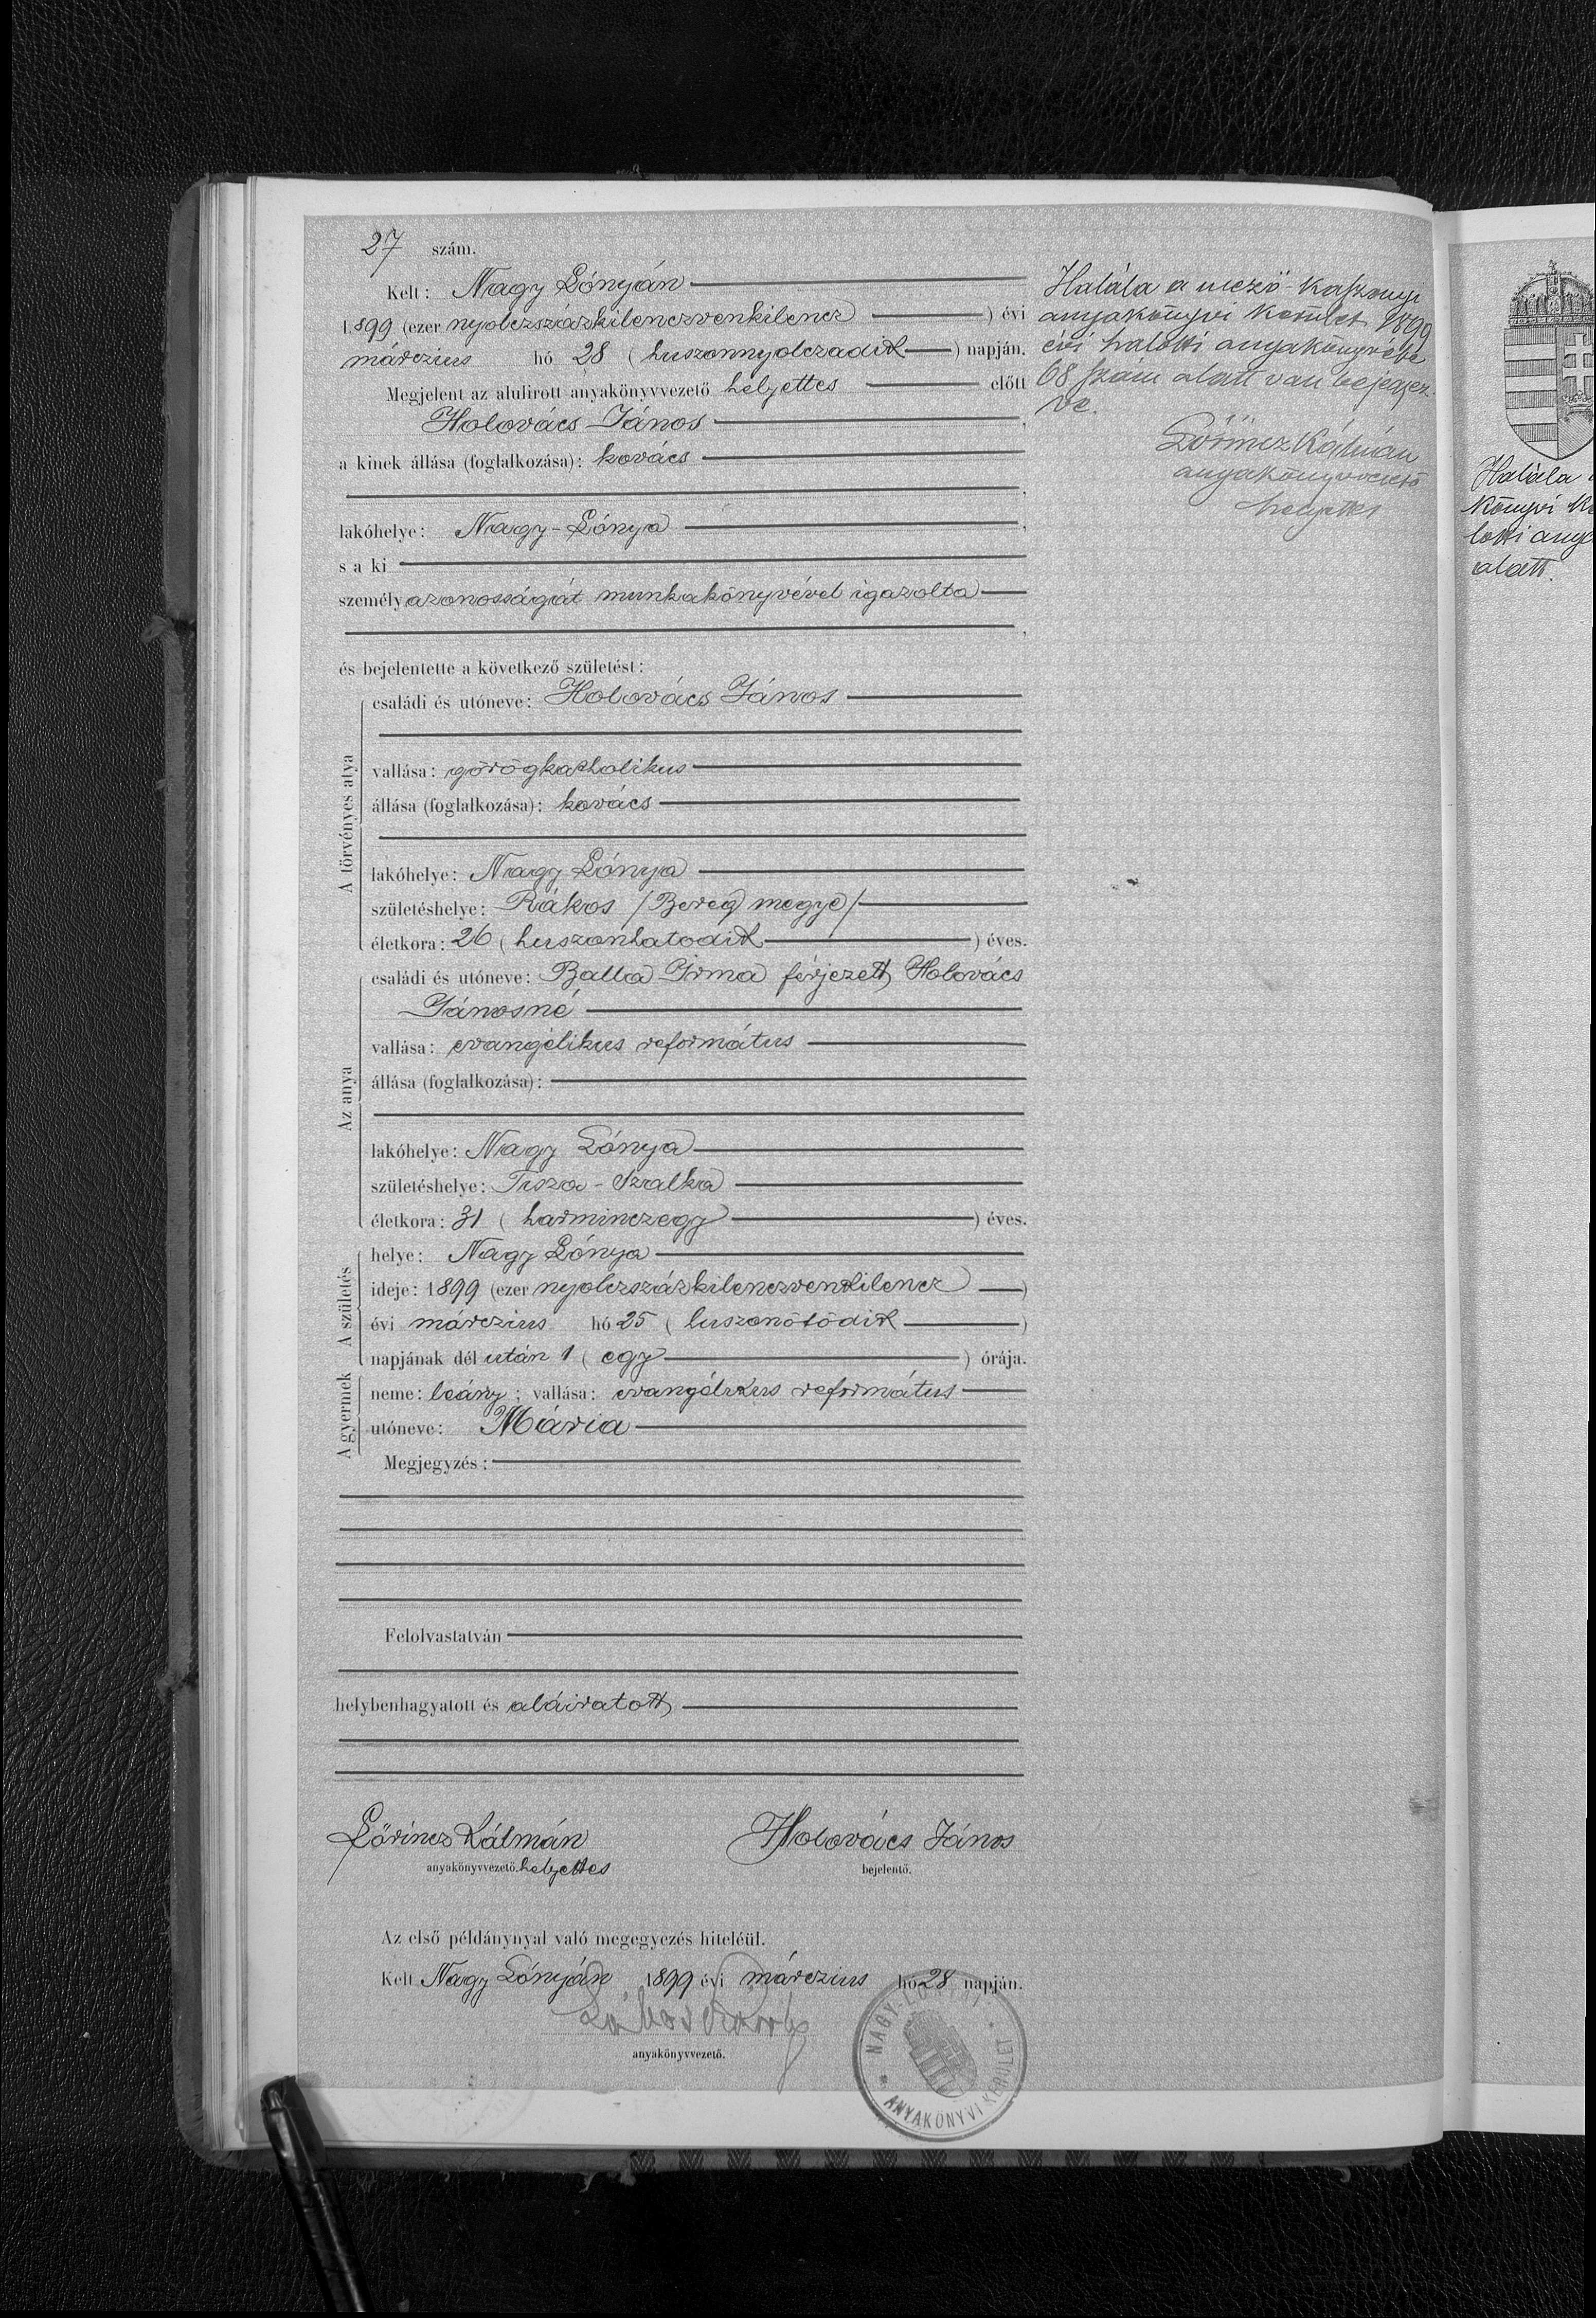 27 szám.
Kelt: Nagy Lónyán
1899 (ezer nyolczszázkilenczvenkilencz) évi
márczius hó 28 (huszonnyolczadik) napján.
Megjelent az alulirott anyakönyvvezető helyettes előtt
Holovács János,
a kinek állása (foglalkozása): kovács
lakóhelye: Nagy-Lónya,
s a ki
személyazonosságát munkakönyvével igazolta
és bejelentette a következő születést:
A törvényes atya
családi és utóneve: Holovács János
vallása: görögkatholikus
állása (foglalkozása): kovács
lakóhelye: Nagy Lónya
születéshelye: Rákos /Bereg megye/
életkora: 26 (huszonhatodik) éves.
Az anya
családi és utóneve: Balla Irma férjezett Holovács
Jánosné
vallása: evangélikus református
állása (foglalkozása):
lakóhelye: Nagy Lónya
születéshelye: Tisza-Szalka
életkora: 31 (harminczegy) éves.
A születés
helye: Nagy Lónya
ideje: 1899 (ezer nyolczszázkilenczvenkilencz)
évi márczius hó 25 (huszonötödik)
napjának dél után 1 (egy) órája.
A gyermek
neme: leány; vallása: evangélikus református
utóneve: Mária
Megjegyzés:
Felolvastatván
helybenhagyatott és aláiratott
Lőrincz Kálmán
anyakönyvvezető. helyettes
Holovács János
bejelentő.
Az első példánynyal való megegyezés hiteléül.
Kelt Nagy Lónyán 1899 évi márczius hó 28 napján.
anyakönyvvezető.
NAGY-LÓNYAI ANYAKÖNYVI KERÜLET
Halála a mező-kaszonyi
anyakönyvi kerület 1899
évi halotti anyakönyvébe
68 szám alatt van bejegyez-
ve.
Lőrincz Kálmán
anyakönyvvezető
helyettes
Halála
könyvi ke
lotti anya
alatt.